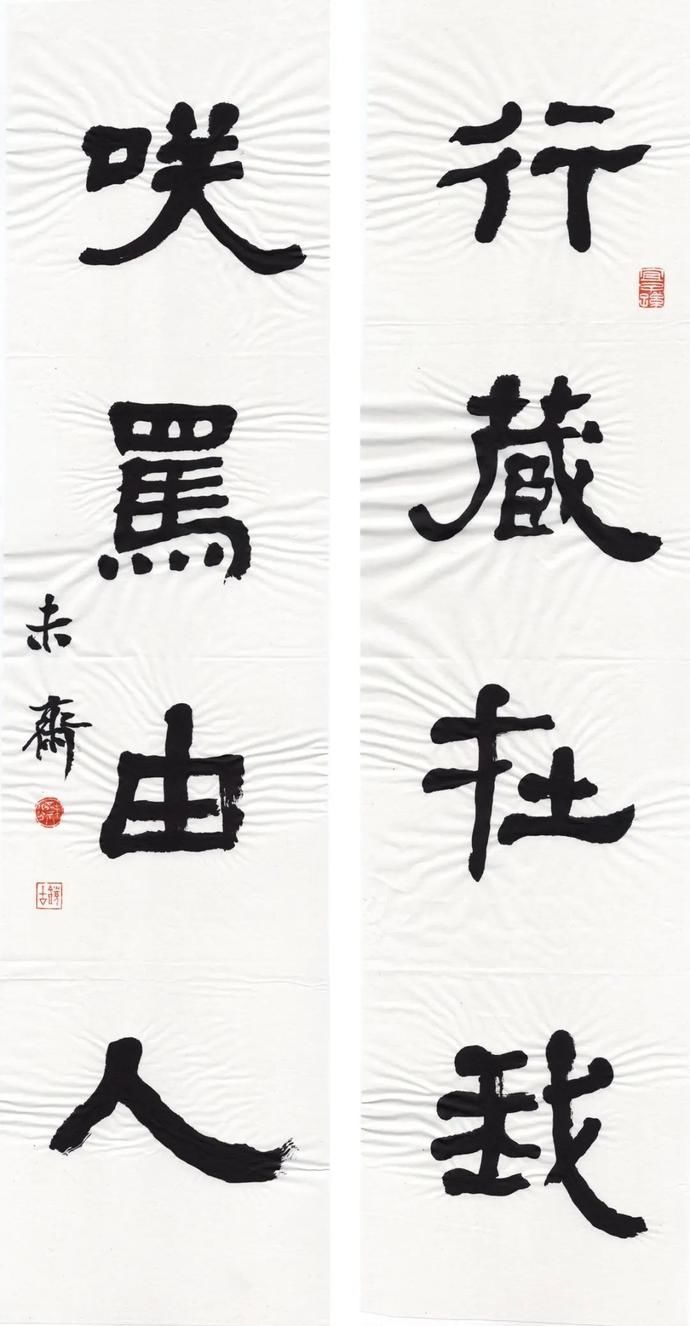 行藏在我
咲罵由人
未齋